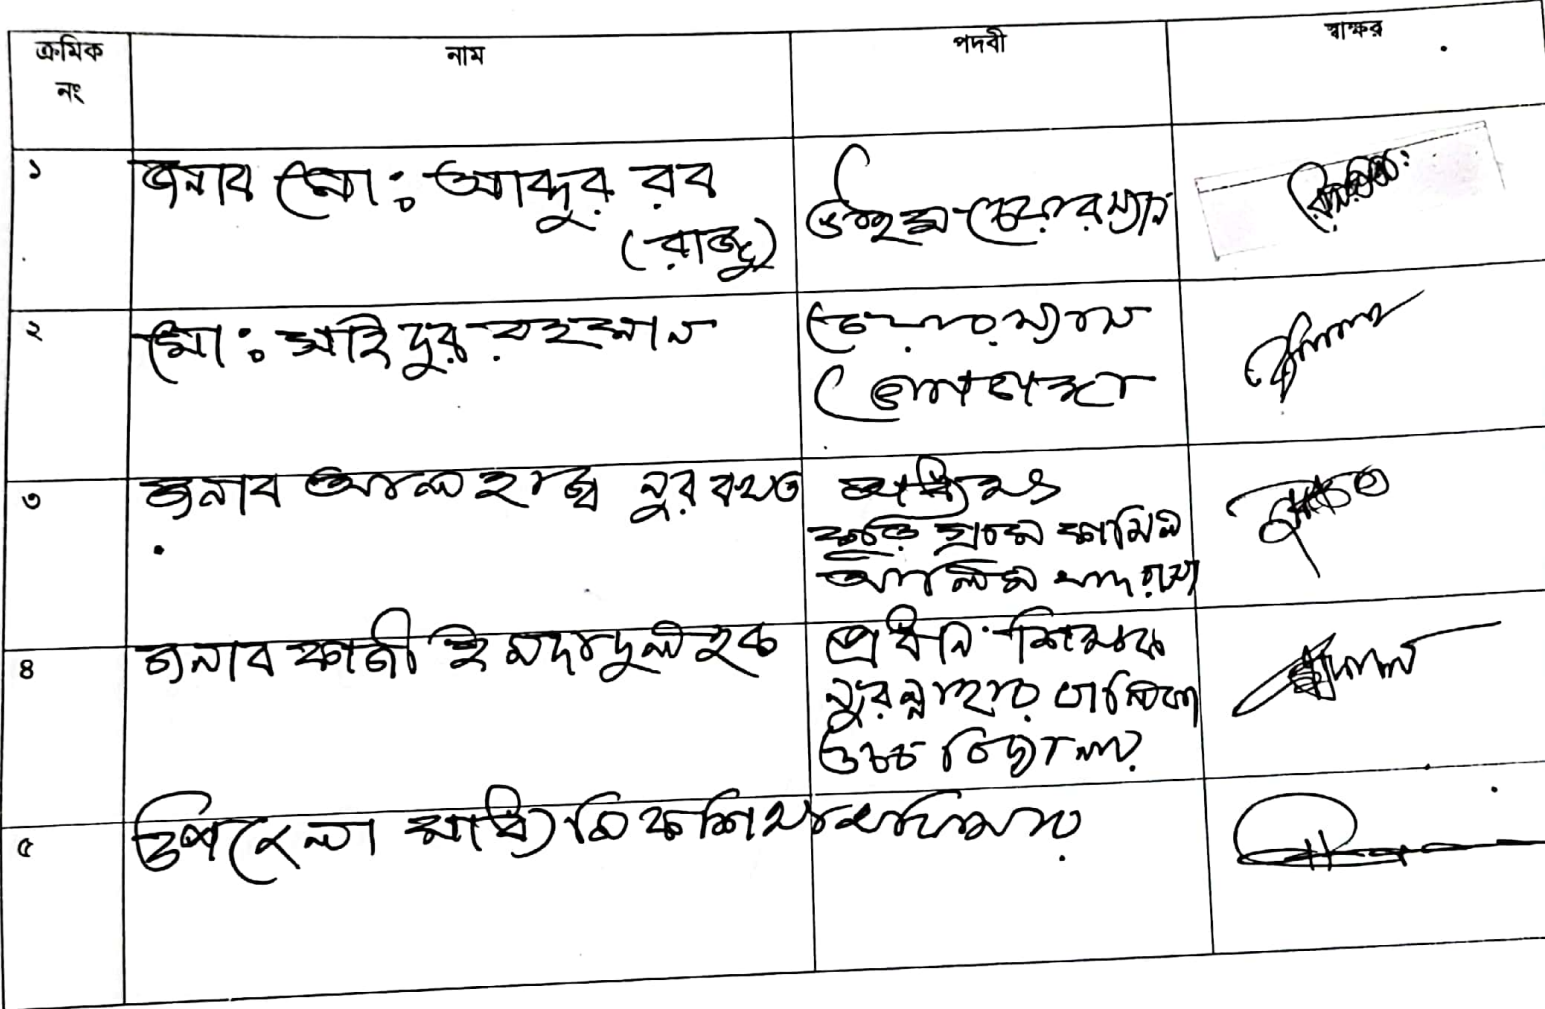 ক্রমিক নং নাম পদবী স্বাক্ষর
১ জনাব মো: আব্দুর রব
(রাজু) ভাইস চেয়ারম্যান
২ মো: সাইদুর রহমান চেয়ারম্যান
৩ জনাব আলহাজ্ব নুর বখত অধ্যক্ষ
কামিল
আলিম মাদরাসা
৪ জনাব কাজী ইমদাদুল হক প্রধান শিক্ষক
নুরন্নাহার বালিকা
উচ্চ বিদ্যালয়
৫ উপজেলা মাধ্যমিক শিক্ষা অফিসার